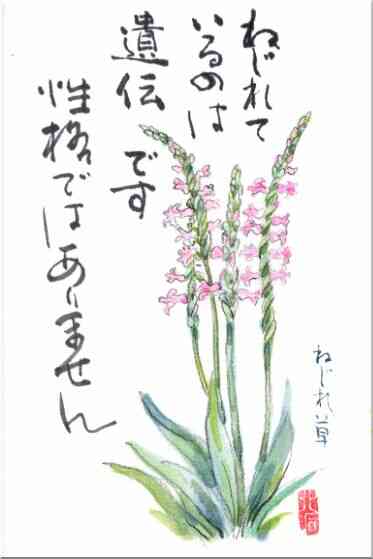 ねじれて
いるのは
遺伝です
性格ではありません
ねじれ草